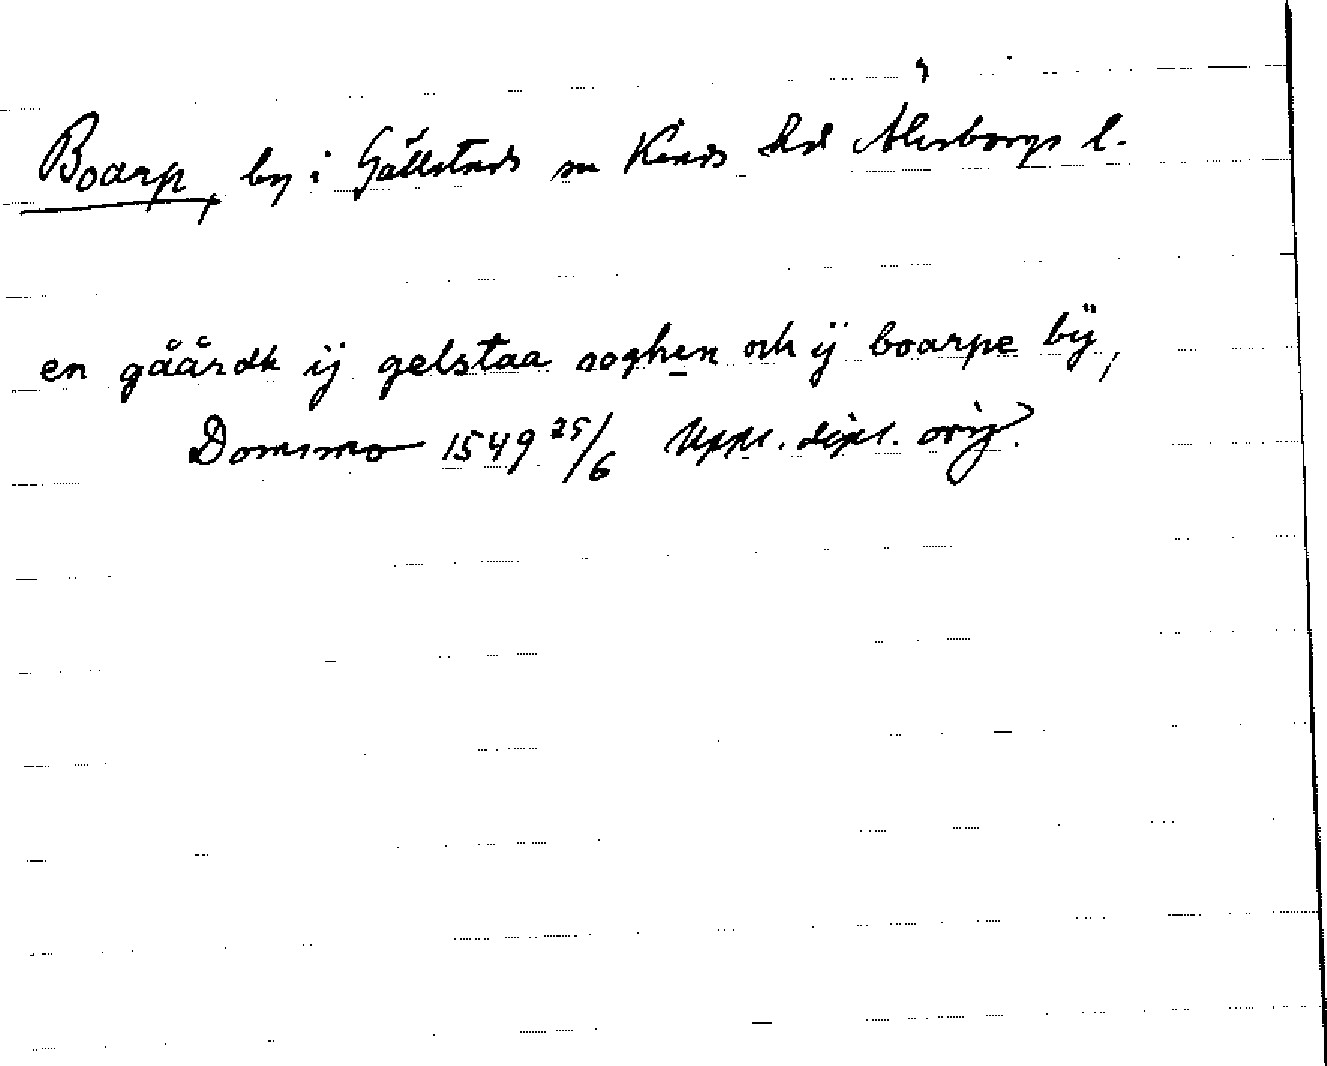 Boarp, by i Gällstads sn Kinds hd Älvsborgs l.
en gåårdh ij gelstaa soghen och ij boarpe bÿ,
Domino 1549 25/6 Uppl. dipl. orig.